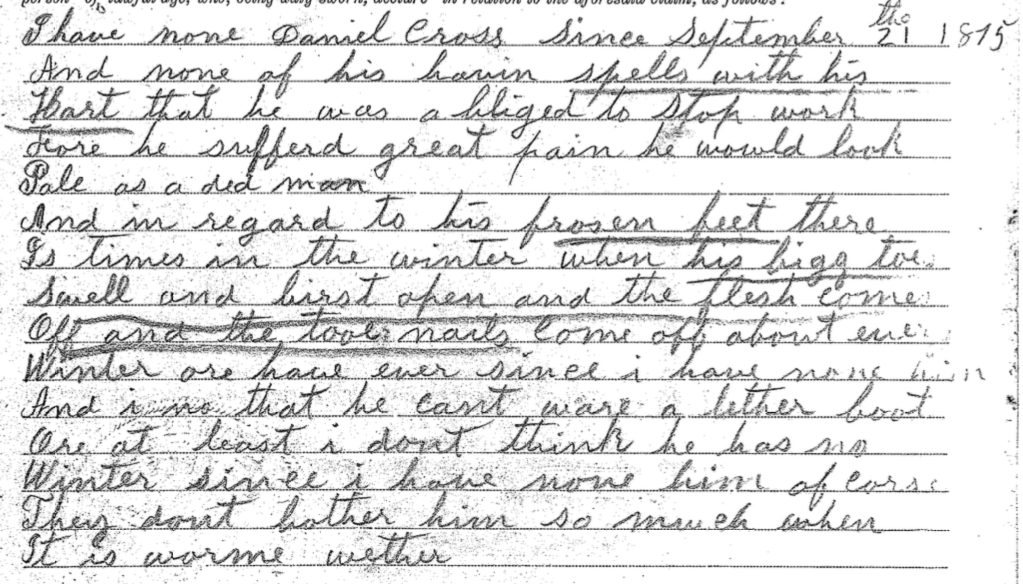 person of lawful age, who, being duly sworn, declare in relation to the aforesaid claim, as follows:
I have none Daniel Cross Since September the 21 1875
And none of his havin spells with his
Hart that he was a bliged to stop work
Fore he sufferd great pain he would look
Pale as a ded man
And in regard to his frosen feet there
Is times in the winter when his bigg toe
Swell and birst open and the flesh come
Off and the tooe nails Come off about ever
Winter ore have ever since i have none him
And i no that he cant ware a lether boot
Ore at least i dont think he has no
Winter since i have none him of corse
They dont bother him so much when
It is worme wether